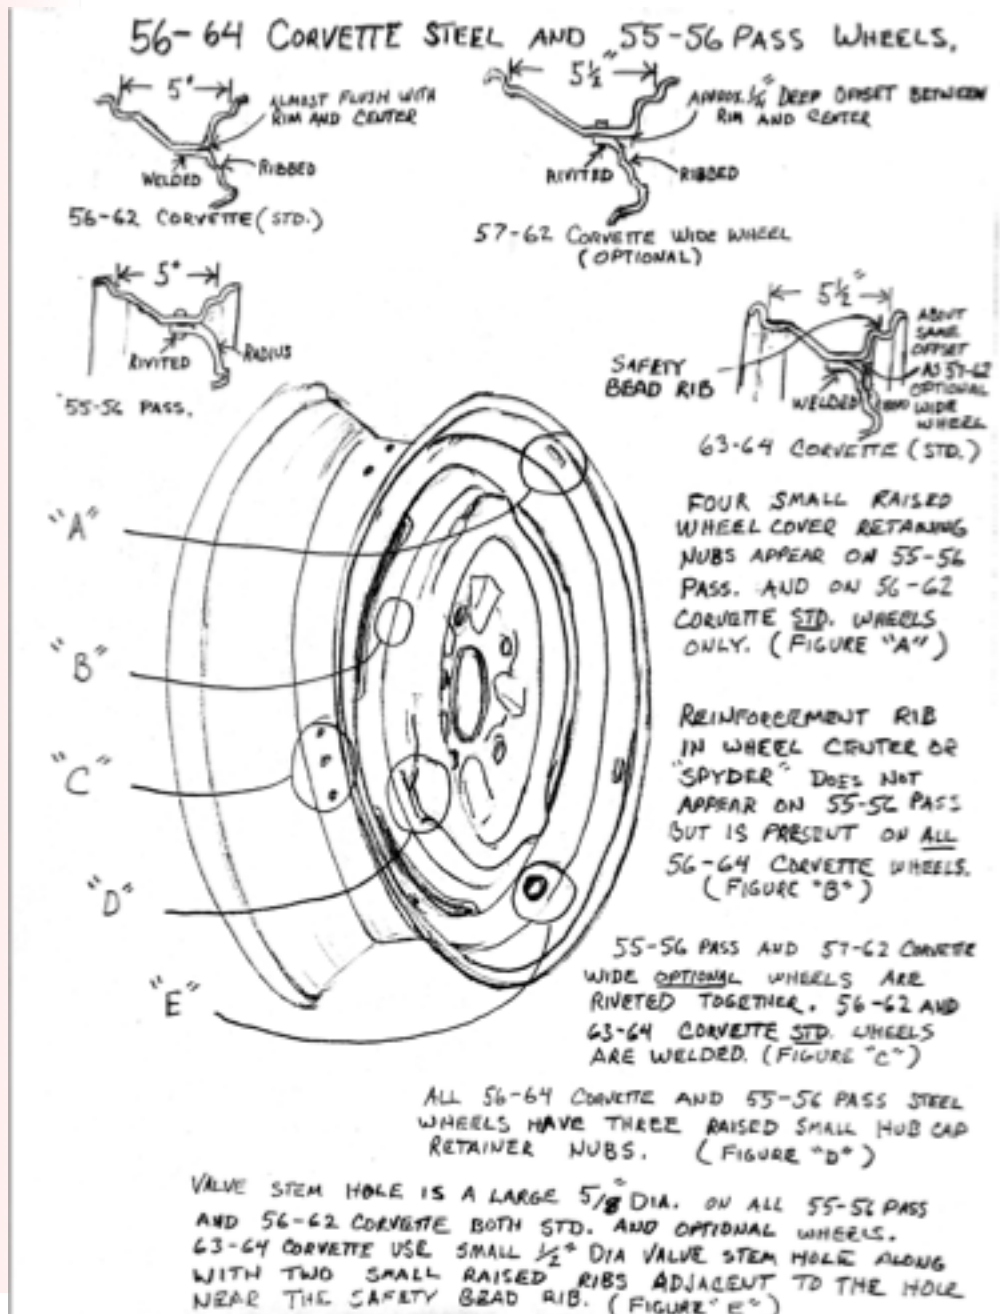 56-64 CORVETTE STEEL AND 55-56 PASS WHEELS.
5"
ALMOST FLUSH WITH
RIM AND CENTER
WELDED
RIBBED
56-62 CORVETTE (STD.)
5½"
APPROX. ¼" DEEP OFFSET BETWEEN
RIM AND CENTER
RIVITED
RIBBED
57-62 CORVETTE WIDE WHEEL
(OPTIONAL)
5"
RIVITED
RADIUS
55-56 PASS.
5½"
SAFETY
BEAD RIB
ABOUT
SAME
OFFSET
AS 57-62
OPTIONAL
WIDE
WHEEL
WELDED
63-64 CORVETTE (STD.)
"A"
"B"
"C"
"D"
"E"
FOUR SMALL RAISED
WHEEL COVER RETAINING
NUBS APPEAR ON 55-56
PASS. AND ON 56-62
CORVETTE STD. WHEELS
ONLY. (FIGURE "A")
REINFORCEMENT RIB
IN WHEEL CENTER OR
"SPYDER" DOES NOT
APPEAR ON 55-56 PASS
BUT IS PRESENT ON ALL
56-64 CORVETTE WHEELS.
(FIGURE "B")
55-56 PASS AND 57-62 CORVETTE
WIDE OPTIONAL WHEELS ARE
RIVETED TOGETHER. 56-62 AND
63-64 CORVETTE STD. WHEELS
ARE WELDED. (FIGURE "C")
ALL 56-64 CORVETTE AND 55-56 PASS STEEL
WHEELS HAVE THREE RAISED SMALL HUB CAP
RETAINER NUBS. (FIGURE "D")
VALVE STEM HOLE IS A LARGE 5/8" DIA. ON ALL 55-56 PASS
AND 56-62 CORVETTE BOTH STD. AND OPTIONAL WHEELS.
63-64 CORVETTE USE SMALL ½" DIA VALVE STEM HOLE ALONG
WITH TWO SMALL RAISED RIBS ADJACENT TO THE HOLE
NEAR THE SAFETY BEAD RIB. (FIGURE "E")